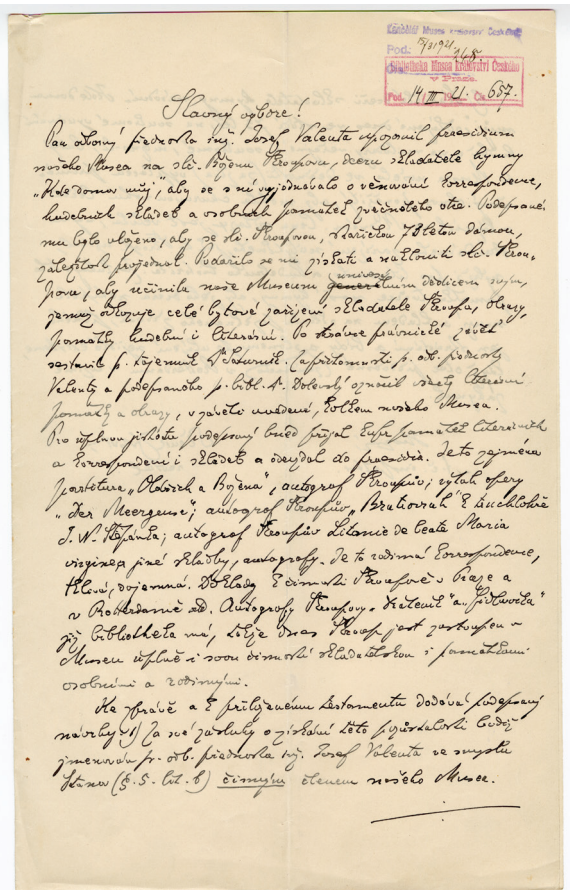 Musea království Českého
Pod: 15/3 1921 248
Bibliotheka Musea království Českého
v Praze.
Pod. 14 III 1921. Čís. 657.
Slavný výbore!
Pan odborný přednosta inž. Josef Valenta upozornil praesidium
našeho Musea na sl. Boženu Škroupovu, dceru skladatele hymny
„Kde domov můj", aby se s ní vyjednávalo o věnování korrespondence,
hudebních skladeb a osobních památek zvěčnělého otce. Podepsané-
mu bylo uloženo, aby se sl. Škroupovou, stařičkou 78letou dámou,
záležitost projednal. Podařilo se mi získati a nakloniti sl. Škrou-
povu, aby učinila naše Museum universálním dědicem svým,
jemuž odkazuje celé bytové zařízení skladatele Škroupa, obrazy,
památky hudební i literární. Po stránce právnické závěť
sestavil p. tajemník Dr. Saturník. Za přítomnosti p. odb. přednosty
Valenty a podepsaného p. bibl. Dr. Dolenský označil všecky literární
památky a obrazy, v závěti uvedené, kolkem našeho Musea.
Pro úplnou jistotu podepsaný hned přijal památek literárních
a korrespondenci i skladeb a odevzdal do praesidia. Je to zejména
partitura „Oldřich a Božena", autograf Škroupův; výtah opery
„Der Meergeuse"; autograf Škroupův k truchlohře
J. N. Štěpánka; autograf Škroupův Litanie de beata Maria
virgine a jiné skladby, autografy. Je to rodinná korrespondence,
dojemná. Doklady k činnosti Škroupově v Praze a
v Rotterdamě atd. Autografy Škroupovy „Dráteník" a „Fidlovačka"
již bibliotheka má, takže dnes Škroup jest zastoupen v
Museu úplně i svou činností skladatelskou i památkami
osobními a rodinnými.
Ke zprávě a k přiloženému testamentu dodává podepsaný
návrhy: 1) Za své zásluhy o získání této pozůstalosti budiž
jmenován p. odb. přednosta inž. Josef Valenta ve smyslu
stanov (§. 5. lit. b) činným členem našeho Musea.